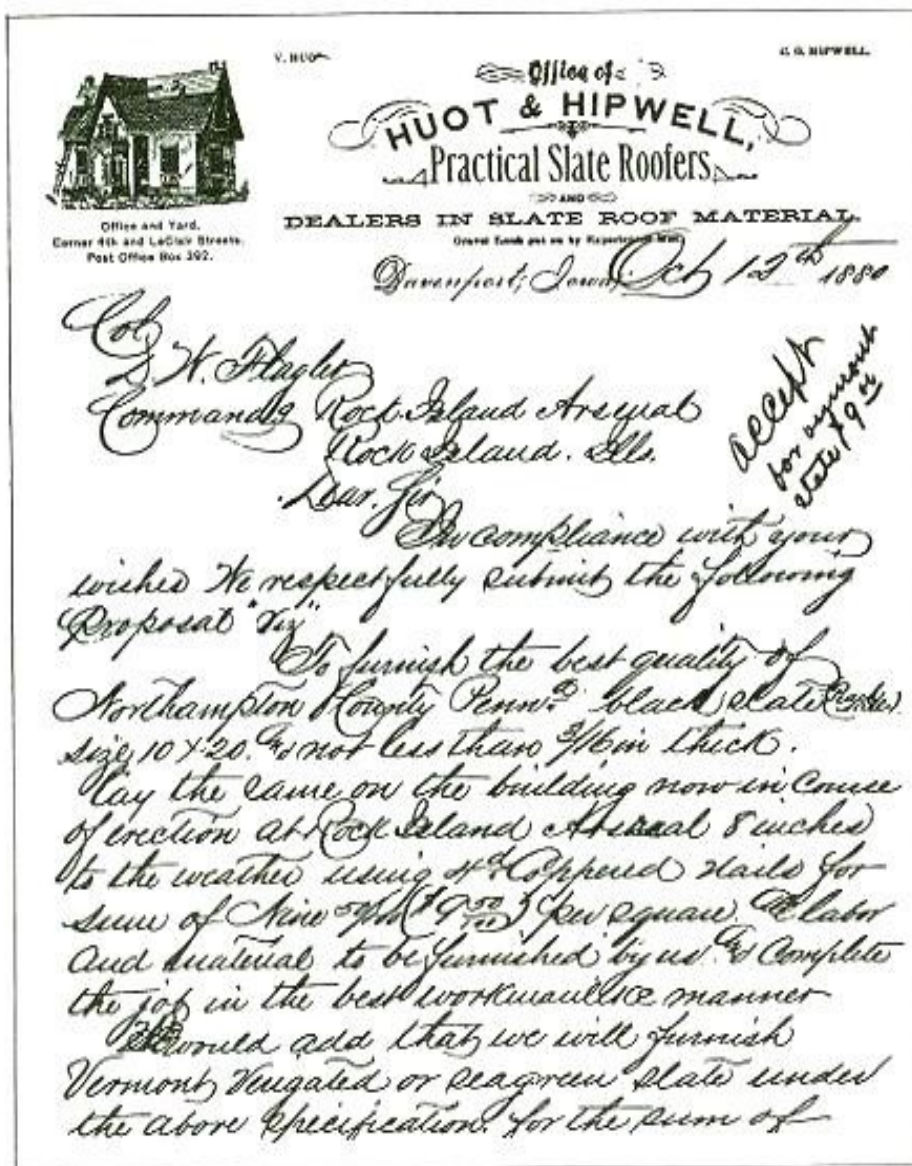 V. HUOT
C. G. HIPWELL.
Office of
HUOT & HIPWELL,
Practical Slate Roofers
AND
DEALERS IN SLATE ROOF MATERIAL.
Gravel Roofs put on by Experienced Men
Office and Yard,
Corner 4th and LeClair Streets,
Post Office Box 392.
Davenport, Iowa, Oct 12th 1880
Col.
D. W. Flagler
Commandg Rock Island Arsenal
Rock Island. Ills.
Dear. Sir
accept
for
slate $9
In compliance with your
wishes We respectfully submit the following
Proposal "Viz"
To furnish the best quality of
Northampton County Penn. black slate
size 10 x 20. & not less than 3/16 in thick.
lay the same on the building now in course
of erection at Rock Island Arsenal 8 inches
to the weather using 4d Coppered nails for
sum of Nine 50/100 ($9 50/100) per square. All labor
and material to be furnished by us. & complete
the job in the best workmanlike manner
would add that we will furnish
Vermont or seagreen slate under
the above specification. for the sum of